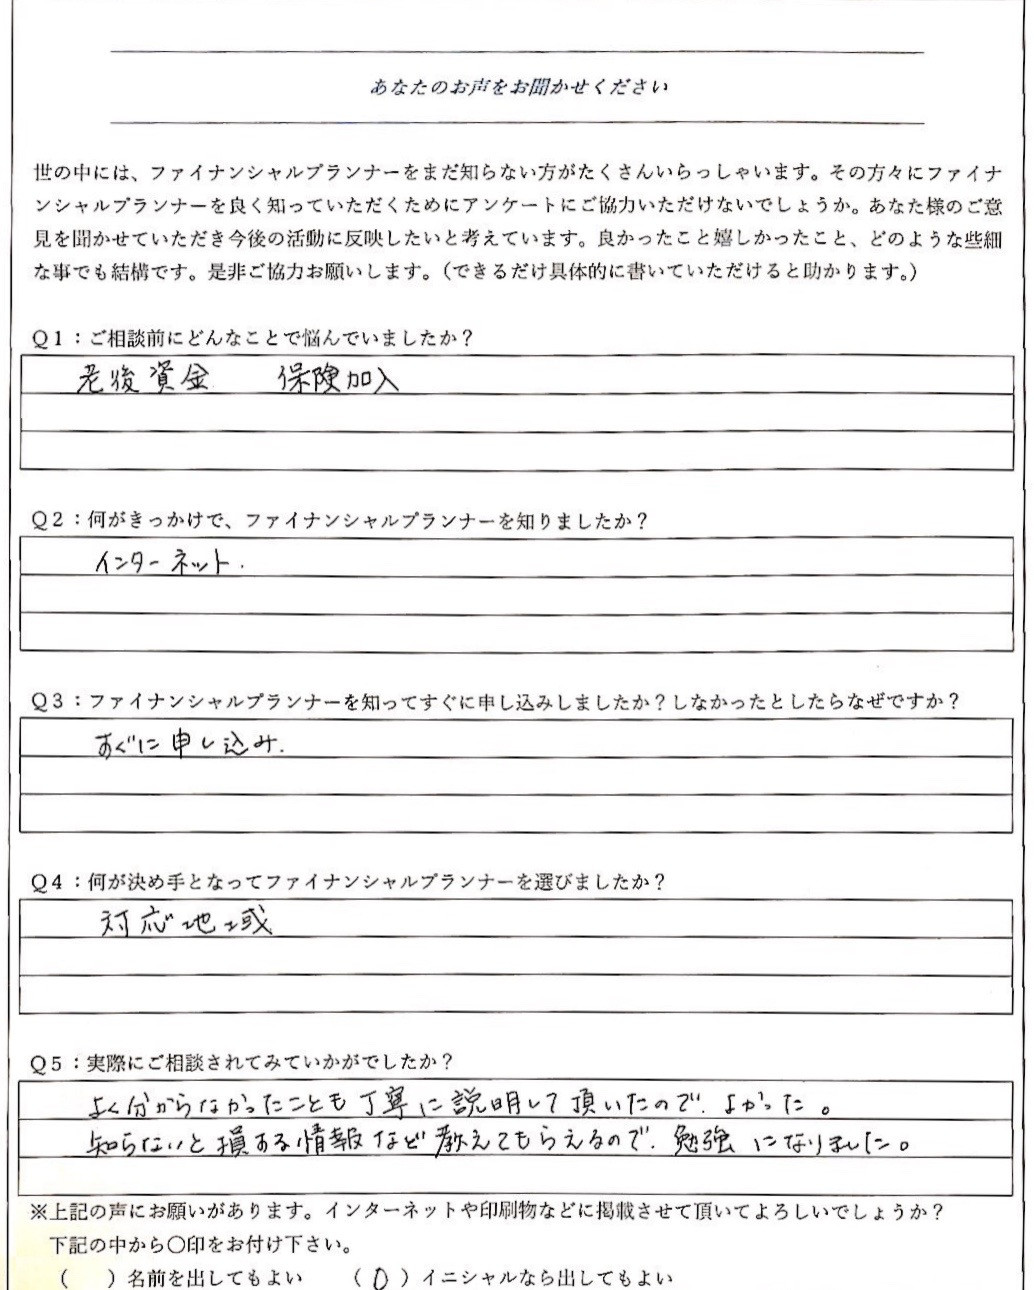 あなたのお声をお聞かせください
世の中には、ファイナンシャルプランナーをまだ知らない方がたくさんいらっしゃいます。その方々にファイナ
ンシャルプランナーを良く知っていただくためにアンケートにご協力いただけないでしょうか。あなた様のご意
見を聞かせていただき今後の活動に反映したいと考えています。良かったこと嬉しかったこと、どのような些細
な事でも結構です。是非ご協力お願いします。（できるだけ具体的に書いていただけると助かります。）
Ｑ１：ご相談前にどんなことで悩んでいましたか？
老後資金　保険加入
Ｑ２：何がきっかけで、ファイナンシャルプランナーを知りましたか？
インターネット.
Ｑ３：ファイナンシャルプランナーを知ってすぐに申し込みしましたか？しなかったとしたらなぜですか？
すぐに申し込み.
Ｑ４：何が決め手となってファイナンシャルプランナーを選びましたか？
対応地域
Ｑ５：実際にご相談されてみていかがでしたか？
よく分からなかったことも丁寧に説明して頂いたので、よかった。
知らないと損する情報など教えてもらえるので、勉強になりました。
※上記の声にお願いがあります。インターネットや印刷物などに掲載させて頂いてよろしいでしょうか？
下記の中から〇印をお付け下さい。
（　　）名前を出してもよい　　（ 〇 ）イニシャルなら出してもよい